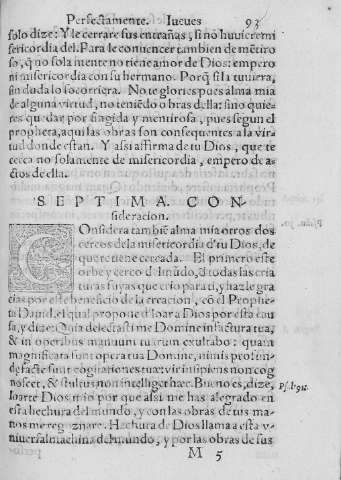 Perfectamente. Iueues 93
solo dize: Y le cerrare sus entrañas, si no huuiere mi
sericordia del. Para le conuencer tambien de mētiro
so, q̃ no sola mente no tiene amor de Dios: empero
ni misericordia con su hermano. Porq̃ si la tuuiera,
sin duda lo socorriera. No te glories pues alma mia
de alguna virtud, no teniēdo obras della: sino quie-
res quedar por fingida y mentirosa, pues segun el
propheta, aqui las obras son consequentes a la vir
tud donde estan. Y assi affirma de tu Dios, que te
cerca no solamente de misericordia, empero de a-
ctos de ella.
SEPTIMA. CON-
sideracion.
COnsidera tambiē alma mia otros dos
cercos de la misericordia d'tu Dios, de
que te tiene cercada. El primero es este
orbe y cerco d'l mũdo, d'todas las cria
turas suyas que crio para ti, y haz le gra
cias por este beneficio de la creacion, cō el Prophe
ta Dauid, el qual propone d'loar a Dios por esta cau
sa, y dize: Quia delectasti me Domine in factura tua,
& in operibus manuum tuarum exultabo: quam
magnificata sunt opera tua Domine, nimis profun-
de factę sunt cogitationes tuæ: vir insipiens non cog
noscet, & stultus non intelliget hæc. Bueno es, dize, Psal. 91.
loarte Dios mio por que assi me has alegrado en
esta hechura del mundo, y con las obras de tus ma-
nos me regoznare. Hechura de Dios llama a esta v-
niuersal machina del mundo, y por las obras de sus
M 5